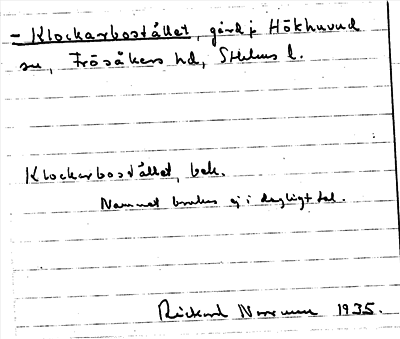 – Klockarbostället, gård i Hökhuvud
sn, Frösåkers hd, Sthlms l.
Klockarbostället, bek.
Namnet brukas ej i dagligt tal.
Rickard 1935.